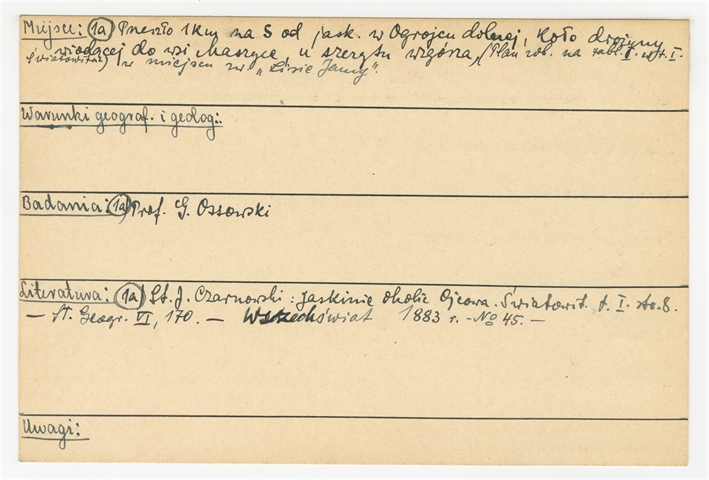 Miejsce: 1a) Przeszło 1 km na S od jask. w Ogrojcu dolnej, koło drożyny
wiodącej do wsi Maszyce, u szczytu wzgórza, (Plan rob. na tabl. II. w t. I.
Światowita) w miejscu zw. „Lisie Jamy".
Warunki geograf. i geolog.:
Badania: 1a) Prof. G. Ossowski
Literatura: 1a) St. J. Czarnowski: Jaskinie okolic Ojcowa. Światowit t. I. str. 8.
— Sł. Geogr. VI, 170. — Wszechświat 1883 r. - No 45. —
Uwagi: